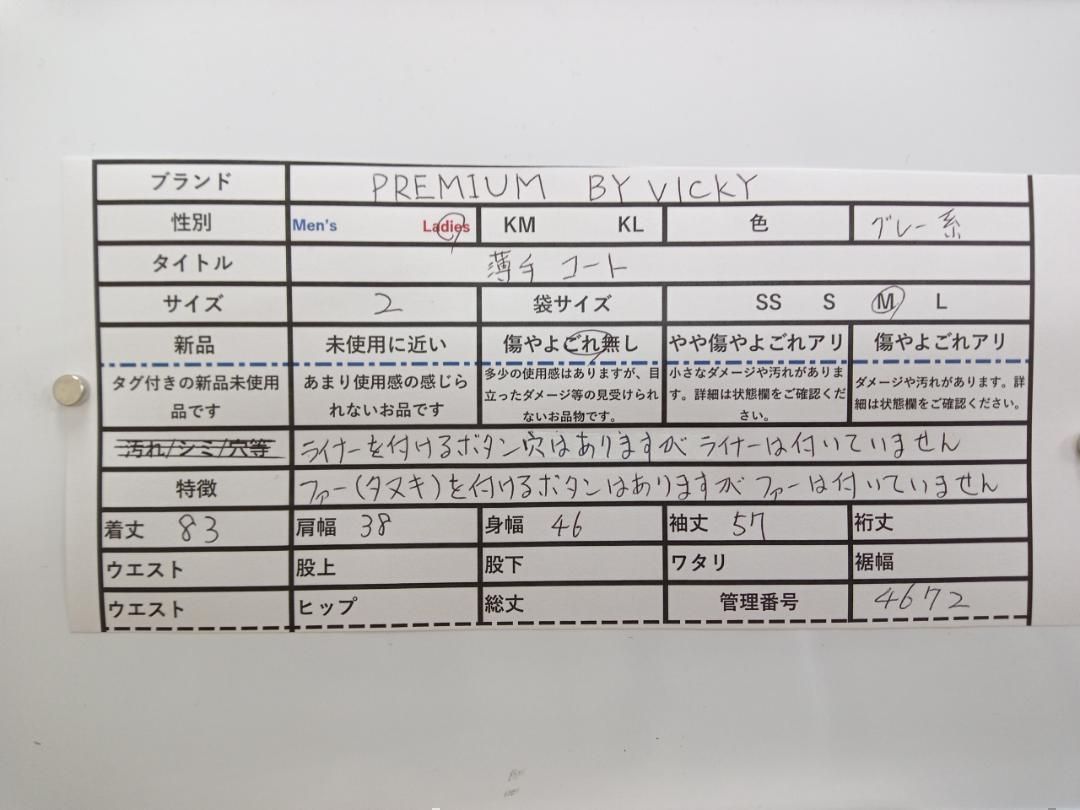 ブランド PREMIUM BY VICKY
性別 Men's Ladies KM KL 色 グレー系
タイトル 薄手コート
サイズ 2 袋サイズ SS S M L
新品 未使用に近い 傷やよごれ無し やや傷やよごれアリ 傷やよごれアリ
タグ付きの新品未使用品です あまり使用感の感じられないお品です 多少の使用感はありますが、目立ったダメージ等の見受けられないお品物です。 小さなダメージや汚れがあります。詳細は状態欄をご確認ください。 ダメージや汚れがあります。詳細は状態欄をご確認ください。
汚れ/シミ/穴等 ライナーを付けるボタン穴はありますがライナーは付いていません
特徴 ファー(タヌキ)を付けるボタンはありますがファーは付いていません
着丈 83 肩幅 38 身幅 46 袖丈 57 裄丈
ウエスト 股上 股下 ワタリ 裾幅
ウエスト ヒップ 総丈 管理番号 4672